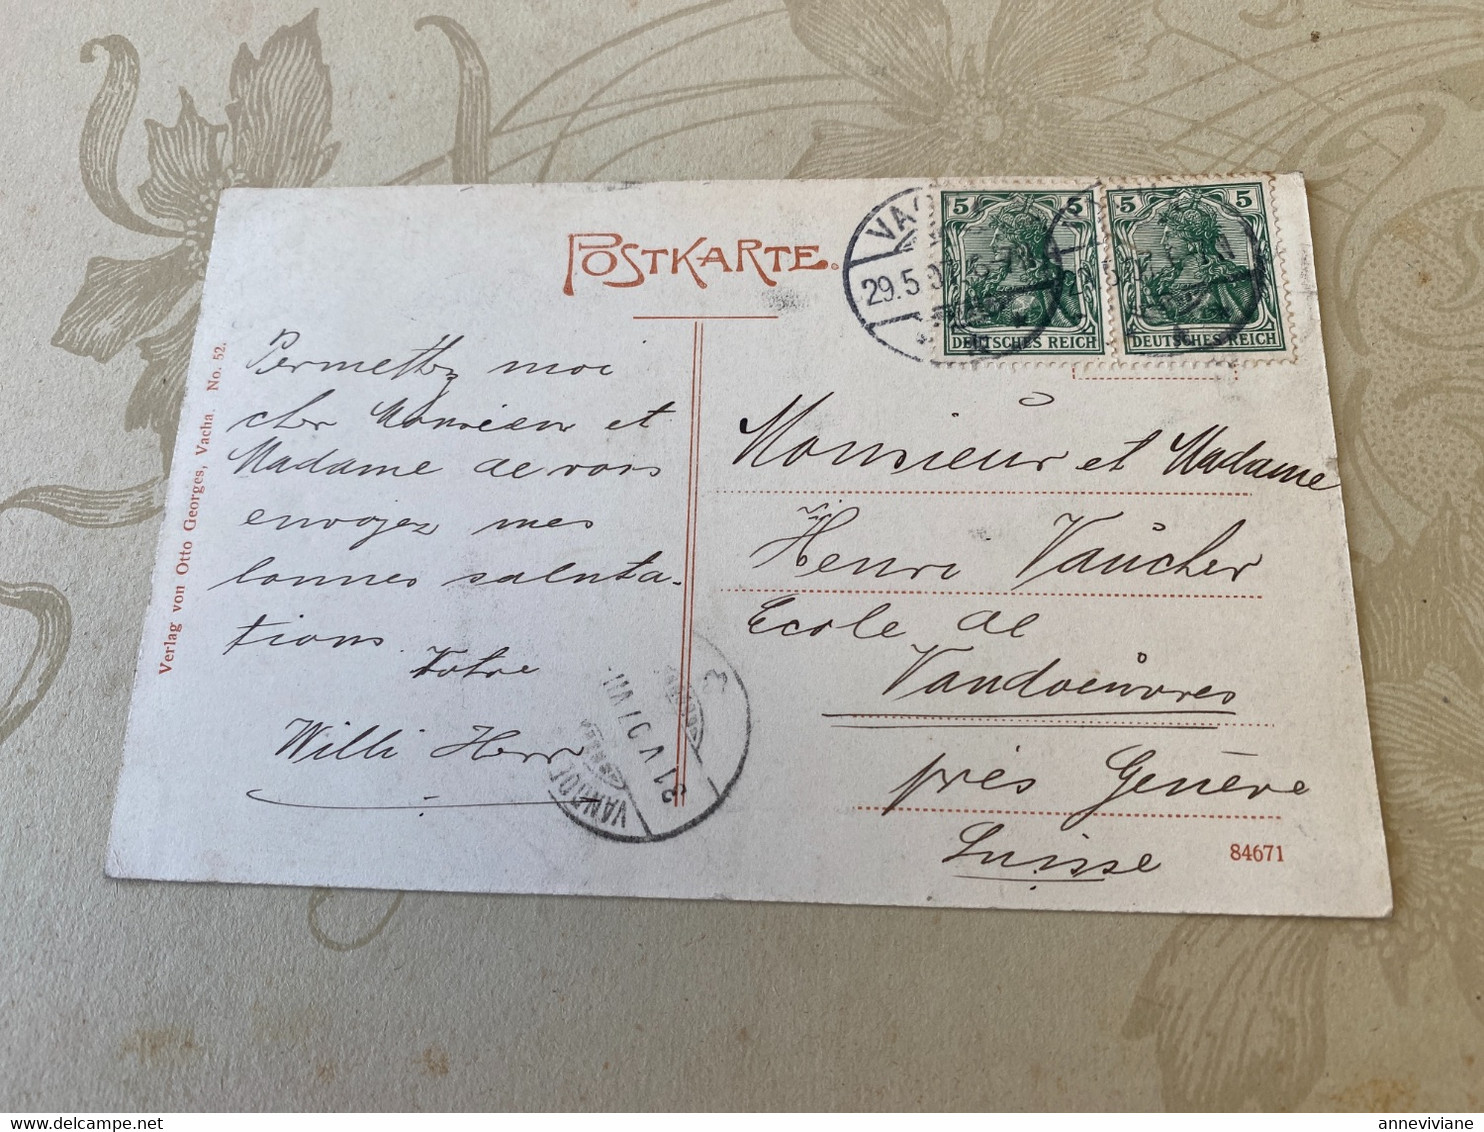 POSTKARTE.
Verlag von Otto Georges, Vacha. No. 52.
Permettez moi
cher Monsieur et
Madame de vous
envoyez mes
bonnes saluta-
tions.
Votre
Willi Herr
Monsieur et Madame
Henri Vaucher
Ecole de
Vandoeuvres
près Genève
Suisse
84671
5 5
DEUTSCHES REICH
5 5
DEUTSCHES REICH
29.5.0
31 V 07 VII
annevivianne